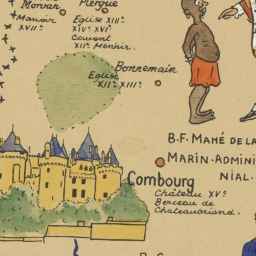 Morvan
Manoir
XVIIᵉ.
Plerguer
Eglise XIIᵉ.
XIVᵉ XVIᵉ
Couvent
XIIᵉ Monoir.
Bonnemain
Eglise
XIIᵉ XIIIᵉ.
B.F. MAHÉ DE LA
MARIN-ADMINI
NIAL.
Combourg
Château XVᵉ
Berceau de
Chateaubriand.